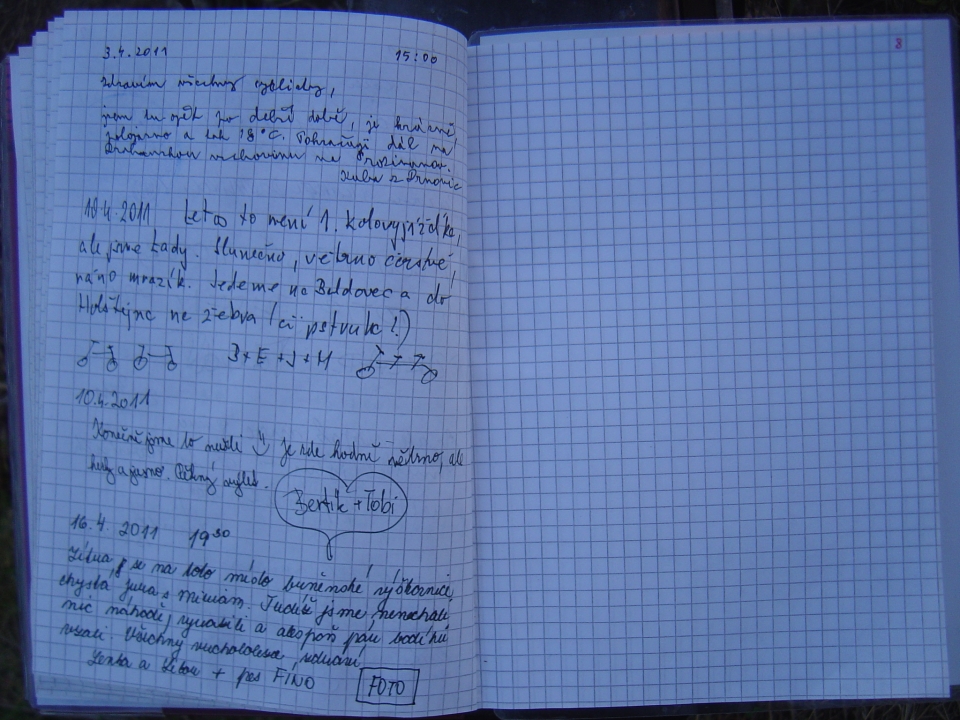 8
3.4.2011 15:00
Zdravím všechny cyklisty,
jsem tu opět po delší době, je krásně
polojasno a tak 18°C. Pokračuji dál na
Drahanskou vrchovinu na
Kuba z Drnovic
10.4.2011 Letos to není 1. kolovyjížďka,
ale jsme tady. Slunečno, větrno čerstvě,
ráno mrazík. Jedeme na Baldovec a do
Holštejna na žebra (či pstruha?)
B+E+J+M
10.4.2011
Konečně jsme to našli je zde hodně větrno, ale
hezky a jasno. Pěkný výhled.
Bertík + Tobi
16.4.2011 19³⁰
se na toto místo brněnské výškovnice
chystá jura s Miriam. Tudíž jsme, nenechali
nic náhodě, vyrazili a alespoň pár bodíků
vzali. Všechny zdraví
Lenka a Libor + pes FÍNO FOTO